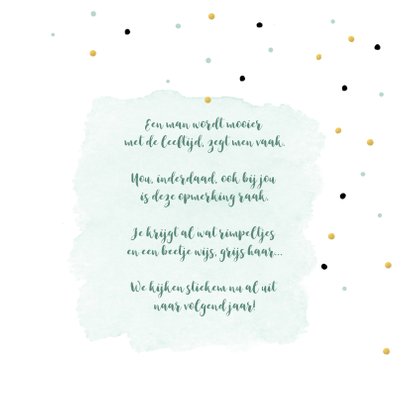 Een man wordt mooier
met de leeftijd, zegt men vaak.
Nou, inderdaad, ook bij jou
is deze opmerking raak.
Je krijgt al wat rimpeltjes
en een beetje wijs, grijs haar...
We kijken stiekem nu al uit
naar volgend jaar!